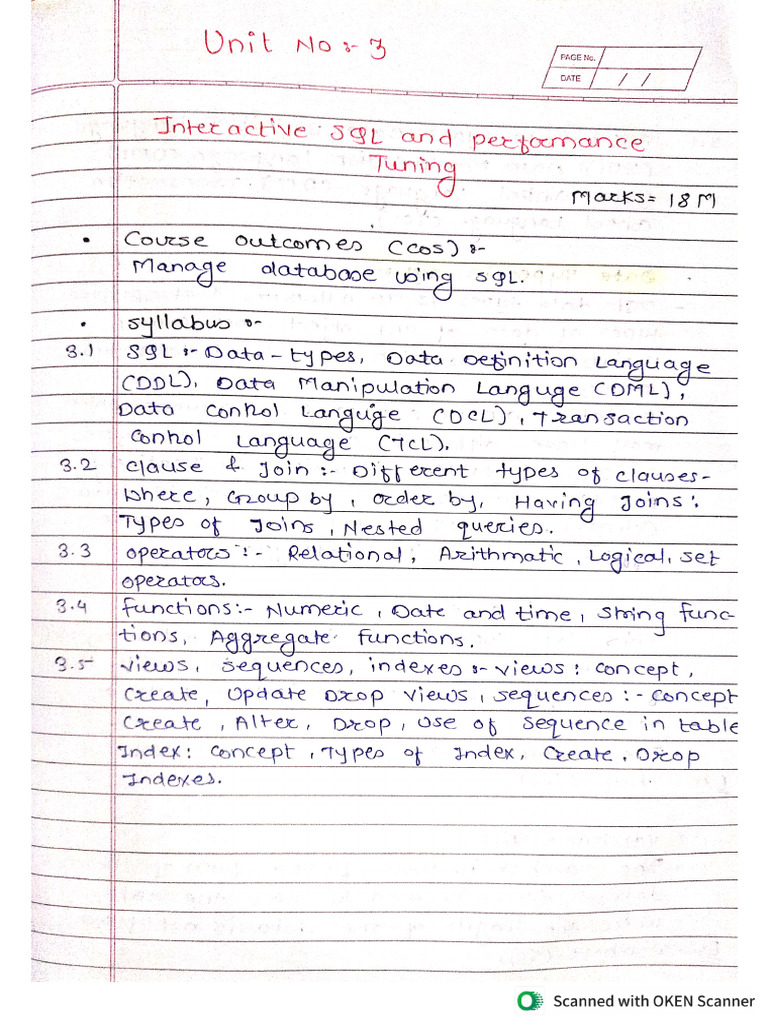 Unit No :- 3
PAGE No.
DATE / /
Interactive SQL and performance
Tuning
Marks = 18 M
• Course outcomes (cos) :-
Manage database using SQL.
• syllabus :-
3.1 SQL :- Data-types, Data Definition Language
(DDL), Data Manipulation Languge (DML),
Data Control Languge (DCL), Transaction
Control Language (TCL).
3.2 clause & Join :- Different types of clauses-
Where, Group by, order by, Having Joins:
Types of Joins, Nested queries.
3.3 operators :- Relational, Arithmatic, Logical, set
operators.
3.4 functions:- Numeric, Date and time, String func-
tions, Aggregate functions.
3.5 views, sequences, indexes :- views : concept,
create, Update Drop views, sequences :- concept
create, Alter, Drop, Use of sequence in table
Index : concept, Types of Index, Create, Drop
Indexes.
Scanned with OKEN Scanner